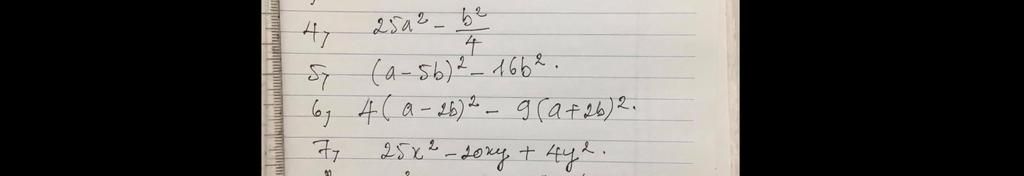 4, 25a² - b²/4
5, (a-5b)² - 16b².
6, 4(a-2b)² - 9(a+2b)².
7, 25x² - 20xy + 4y².